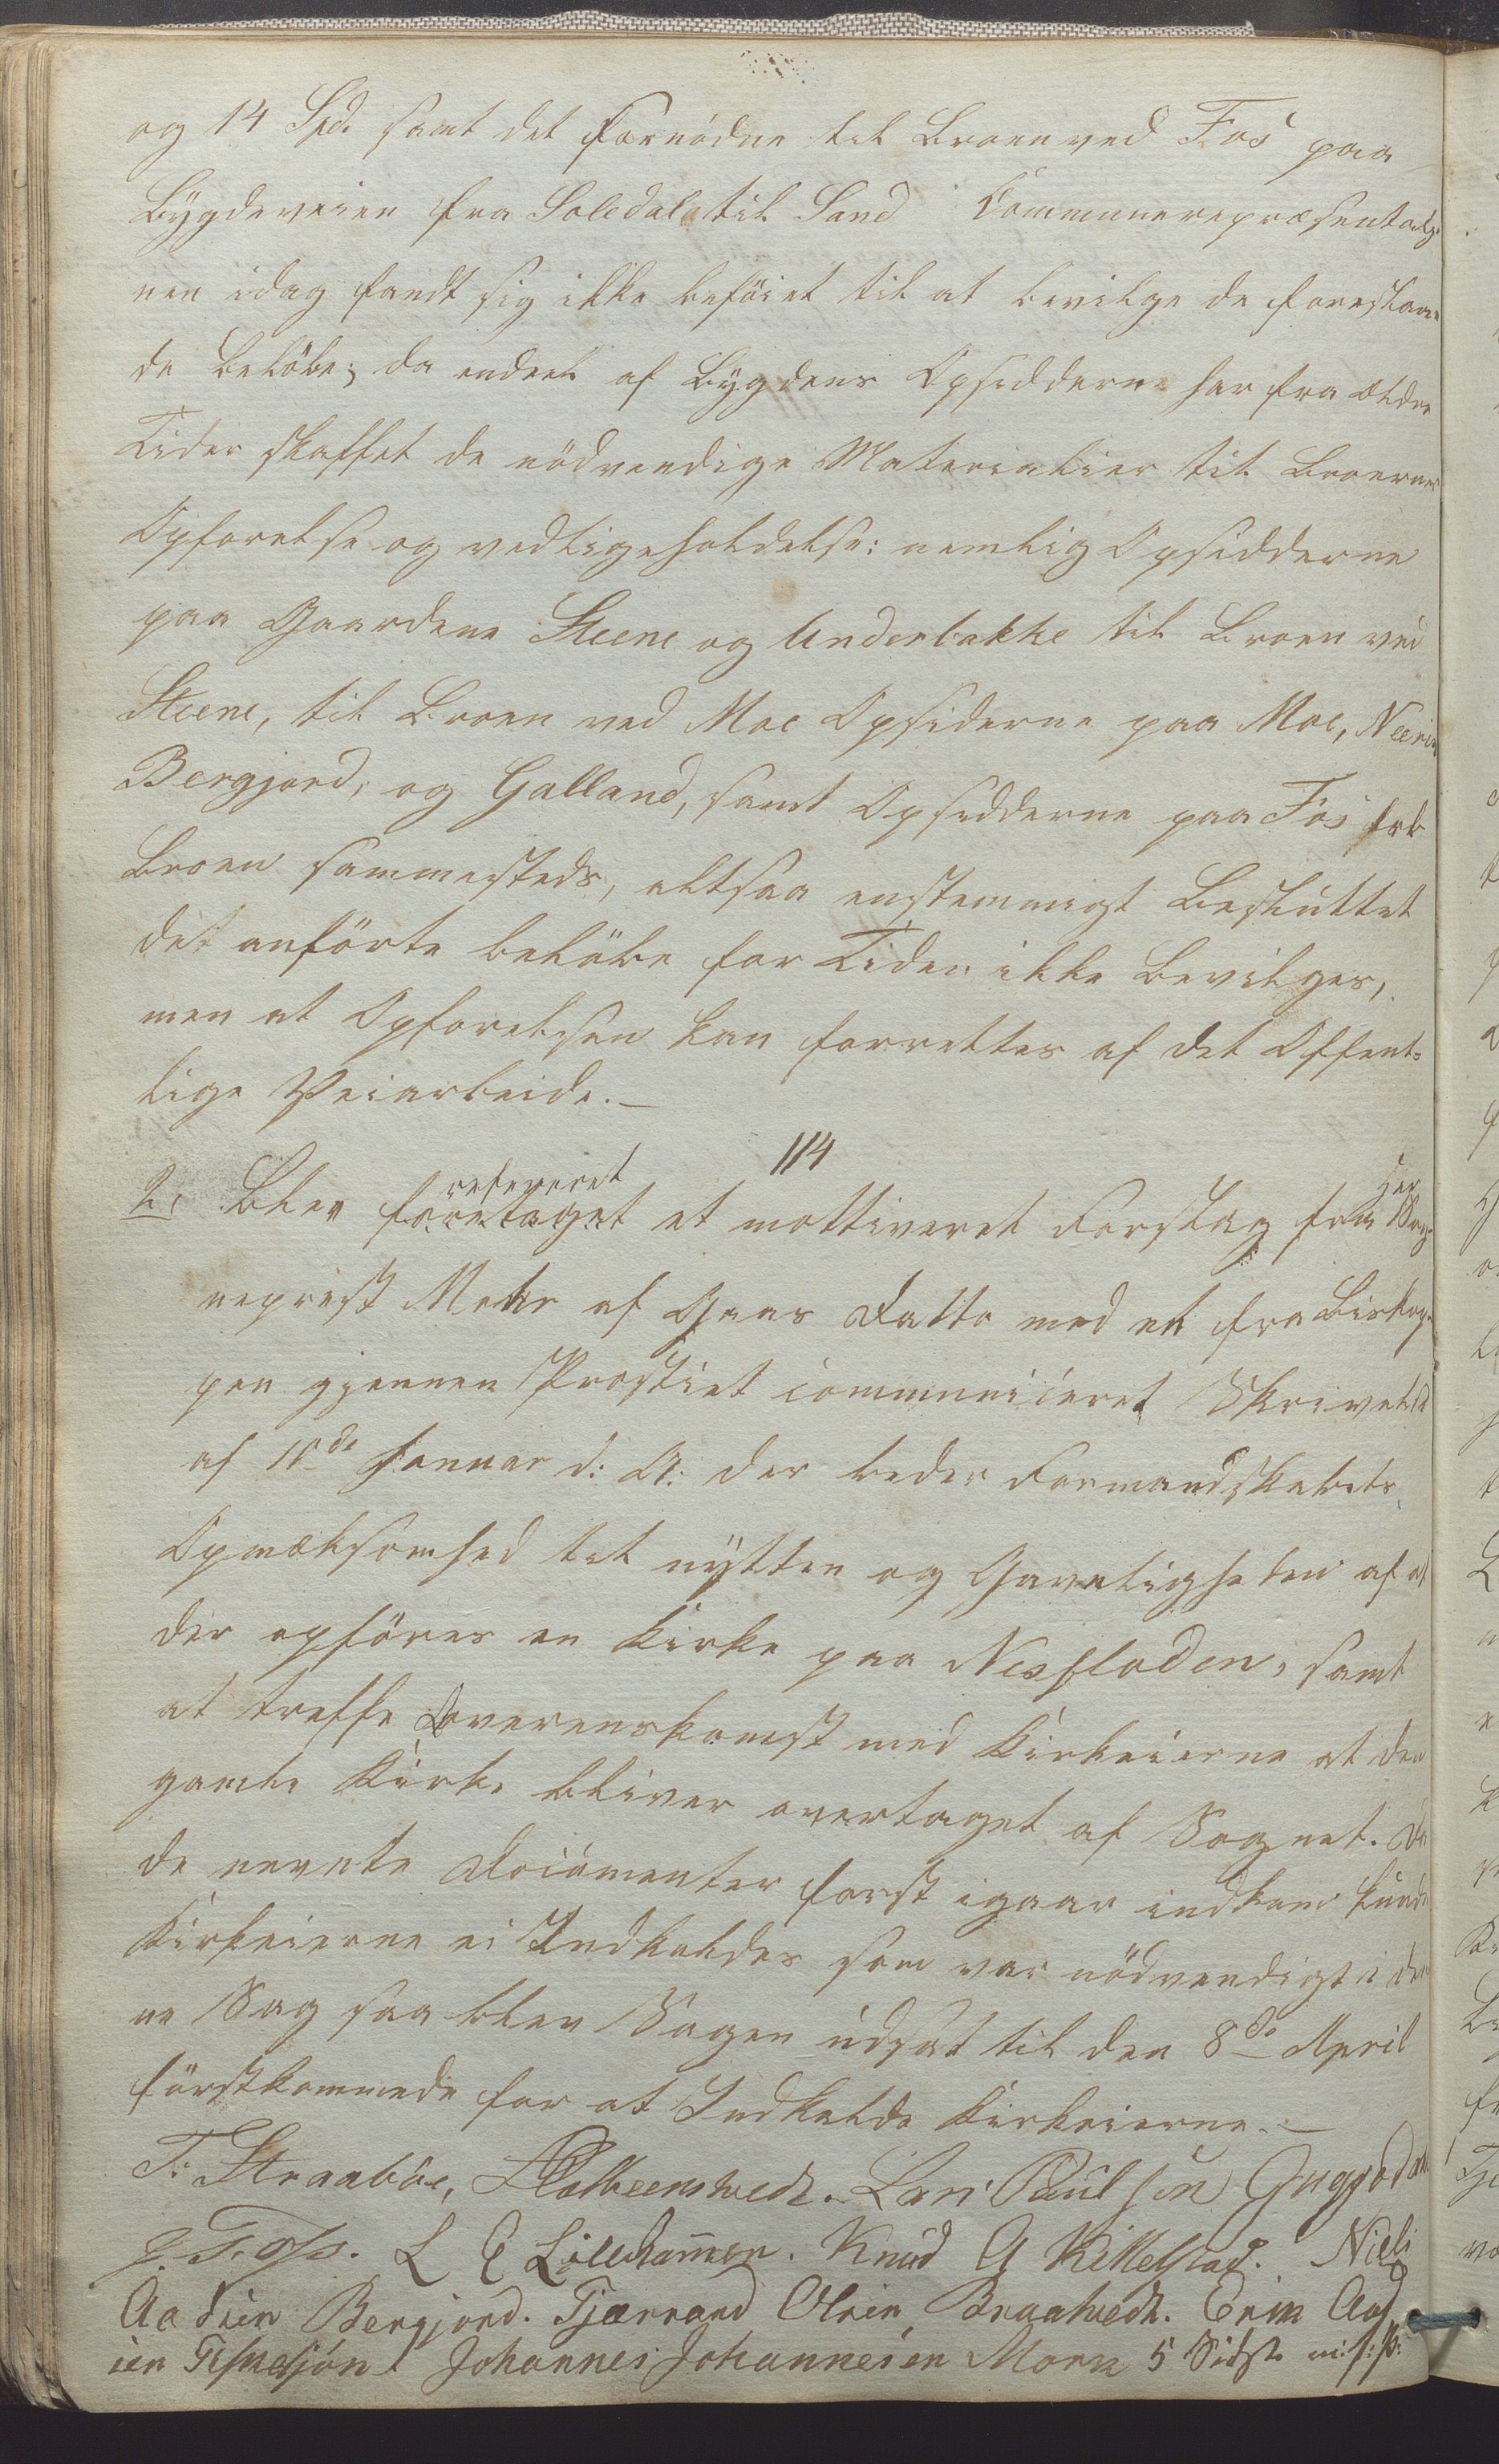 og 14 Spd. samt det fornödne til Broen ved Fos paa
Bygdeveien fra Soledale til Sand Communerepræsentatio-
nen idag fandt sig ikke beföiet til at bevilge de foreslaae-
de Belöbe; da endeel af Bygdens Opsiddern har fra ældre
Tider skaffet de nödvendige Materialier til Broernes
Opförelse og vedligeholdelse: nemlig Opsidderne
paa Gaardene Steene og Underbakke til Broen ved
Steene, til Broen ved Moe Opsiderne paa Moe, Neerim
Bergjord, og Galland, samt Opsidderne paa Fos til
Broen sammesteds, altsaa enstemmigt Besluttet
det anförte belöbe for Tiden ikke Bevilges,
men at Opförelsen kan forrettes af det Offent-
lige Veiarbeide.
114
refereret
2. Blev foretaget et mottiveret Forslag fra Her Sog-
neprest Mohr af Hans Datto med et fra Biskop-
pen gjennem Prostiet communiceret Skrivelse
af 18de Januar d: A: der leder Formandskabets
Opmærksomhed til nytten og Gavnligheden af at
der opföres en Kirke paa Nesfloden, samt
at treffe Overenskomst med Kirkeierne at den
gamle Kirke bliver overtaget af Sognet. Da
de nevnte Documenter först igaar indkom kunde
Kirkeierne ei Indkaldes som var nödvendigt i den-
ne Sag saa blev Sagen udsat til den 8de April
förstkommende for at Indkalde Kirkeierne.
T: Straaböe, Lars Paulsen Guggedal
T. Foss. L E Lillehammer. Knud A Kittelstad. Niels
Aadsen Bergjord. Tjærrand Olsen Braatvedt. Erik Aad
sen Johannes Johannesen Moen 5 Sidste m: f: P: